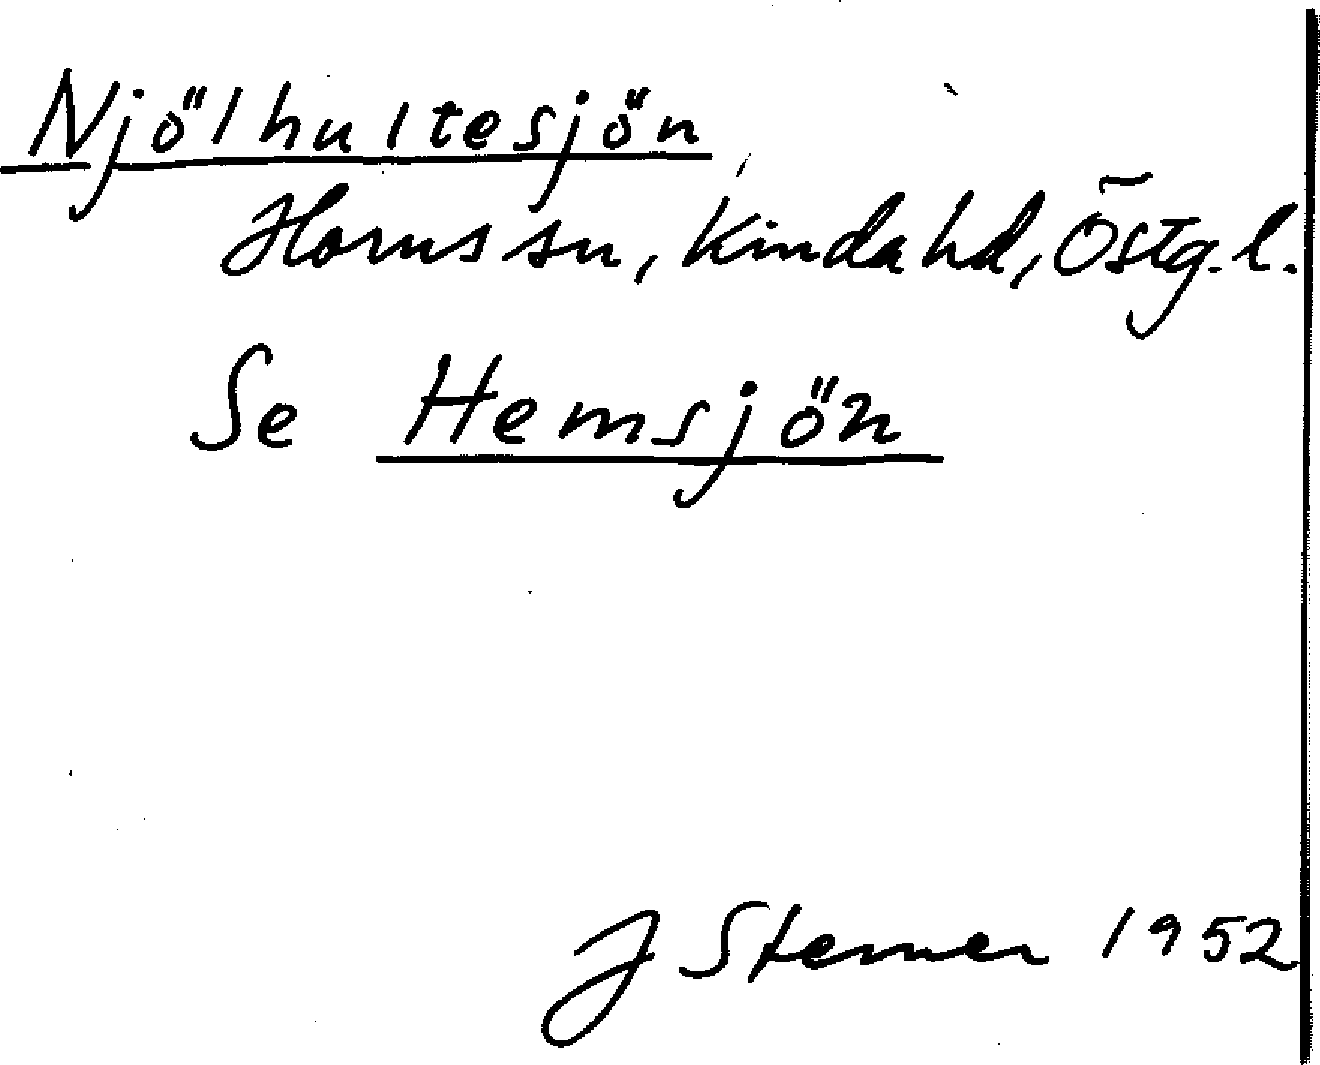 Njölhultesjön
Horns sn, Kinda hd, Östg. l.
Se Hemsjön
J Sterner 1952